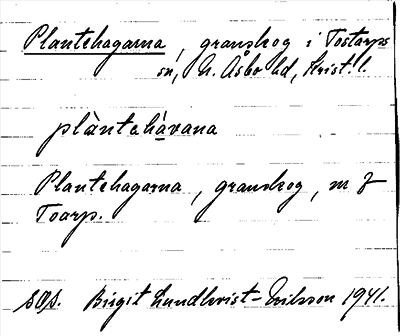 Plantehagarna, granskog i Tostarps
sn, N. Åsbo hd, Krist. l.
plàntehàvana
Plantehagarna, granskog, m f
Toarp.
SOA. Birgit Lundkvist-Nilsson 1941.